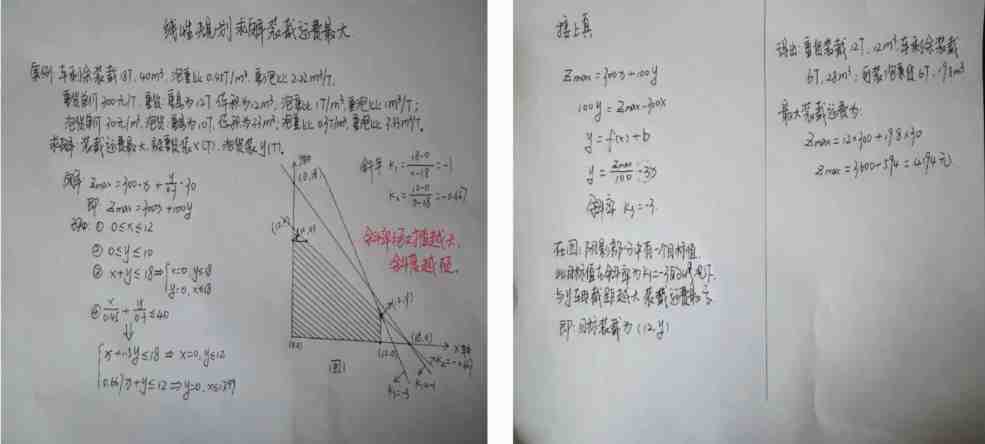 线性规划求解装载运费最大
案例:车剩余装载18T,40m³,泡重比0.45T/m³,重泡比2.22m³/T.
重货单价300元/T,重货,重量为12T,体积为12m³,泡重比1T/m³,重泡比1m³/T;
泡货单价30元/m³,泡货,重量为10T,体积为33m³,泡重比0.3T/m³,重泡比3.33m³/T.
求解:装载运费最大,设重货装x(T),泡货装y(T).
解 Zmax=300·x+y/0.3·30
即 Zmax=300x+100y
① 0≤x≤12
② 0≤y≤10
③ x+y≤18⇒{x=0,y≤18
y=0,x≤18
④ +y/0.3≤40
≤18 ⇒ x=0,y≤12
0.667x+y≤12⇒y=0,x≤
斜率 K₁=18-0/0-18=-1
K₂=12-0/0-18=-0.667
斜率绝对值越大,
斜度越陡.
(0,18)
(0,0)
(12,0)
(18,0)
X
图1
K₂=-0.667
K₁=-1
K₃=-3
接上页
Zmax=300x+100y
100y=Zmax-300x
y=f(x)+b
y=Zmax/100-3x
斜率 K₃=-3.
在图1阴影部分中有一个目标值
与y轴截距越大,装载运费最
即:目标装载为(12,y)
得出:重货装载12T,12m³,车剩余装载
6T,28m³;可装泡货6T,19.8m³
最大装载运费为:
Zmax=12×300+19.8×30
Zmax=3600+594=4194元